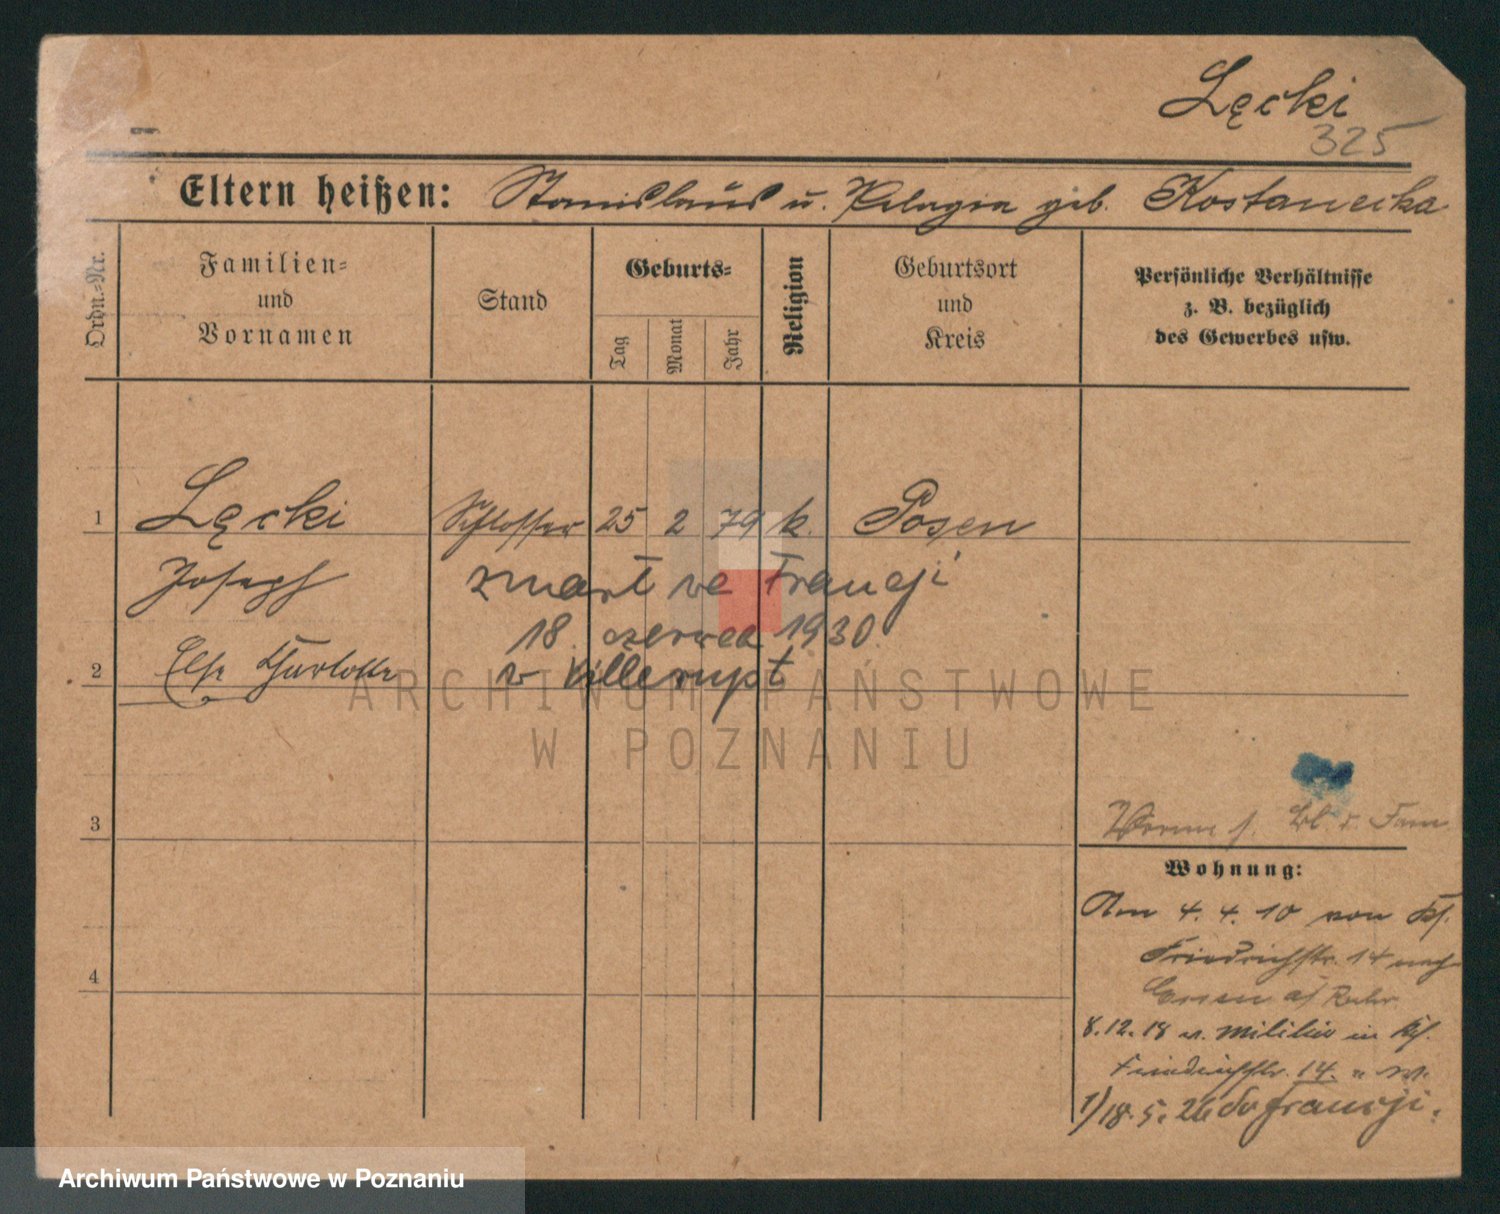 Lęcki
325
Eltern heißen: Stanislaus u. Pelagia geb. Kostanecka
Ordn.-Nr.
Familien-
und
Vornamen
Stand
Geburts-
Tag
Monat
Jahr
Religion
Geburtsort
und
Kreis
Persönliche Verhältnisse
z. B. bezüglich
des Gewerbes usw.
1 Lęcki Schlosser 25 2 79 k. Posen
Joseph zmarł we Francji
18 czerwca 1930
2 Else Charlotte v Villerupt
ARCHIWUM PAŃSTWOWE
W POZNANIU
3
Wohnung:
Am 4. 4. 10 von
Friedrichstr. 14 nach
Essen a/ Ruhr.
4
8.12.18 v. Militär in
Friedrichstr. 14.
1) 18.5. 26 do Francji.
Archiwum Państwowe w Poznaniu